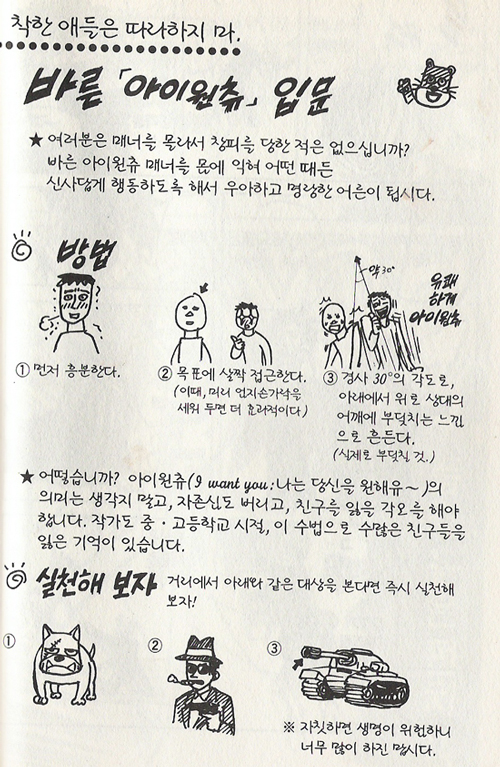 착한 애들은 따라하지 마.
바른 「아이원츄」 입문
★ 여러분은 매너를 몰라서 창피를 당한 적은 없으십니까?
바른 아이원츄 매너를 몸에 익혀 어떤 때든
신사답게 행동하도록 해서 우아하고 명랑한 어른이 됩시다.
방법
① 먼저 흥분한다.
② 목표에 살짝 접근한다.
(이때, 미리 엄지손가락을
세워 두면 더 효과적이다)
약30°
유쾌
하게
아이원츄
③ 경사 30°의 각도로,
아래에서 위로 상대의
어깨에 부딪치는 느낌
으로 흔든다.
(실제로 부딪칠 것.)
★ 어떻습니까? 아이원츄(I want you:나는 당신을 원해유~)의
의미는 생각지 말고, 자존심도 버리고, 친구를 잃을 각오를 해야
합니다. 작가도 중·고등학교 시절, 이 수법으로 수많은 친구들을
잃은 기억이 있습니다.
실천해 보자 거리에서 아래와 같은 대상을 본다면 즉시 실천해
보자!
① ② ③
※ 자칫하면 생명이 위험하니
너무 많이 하진 맙시다.